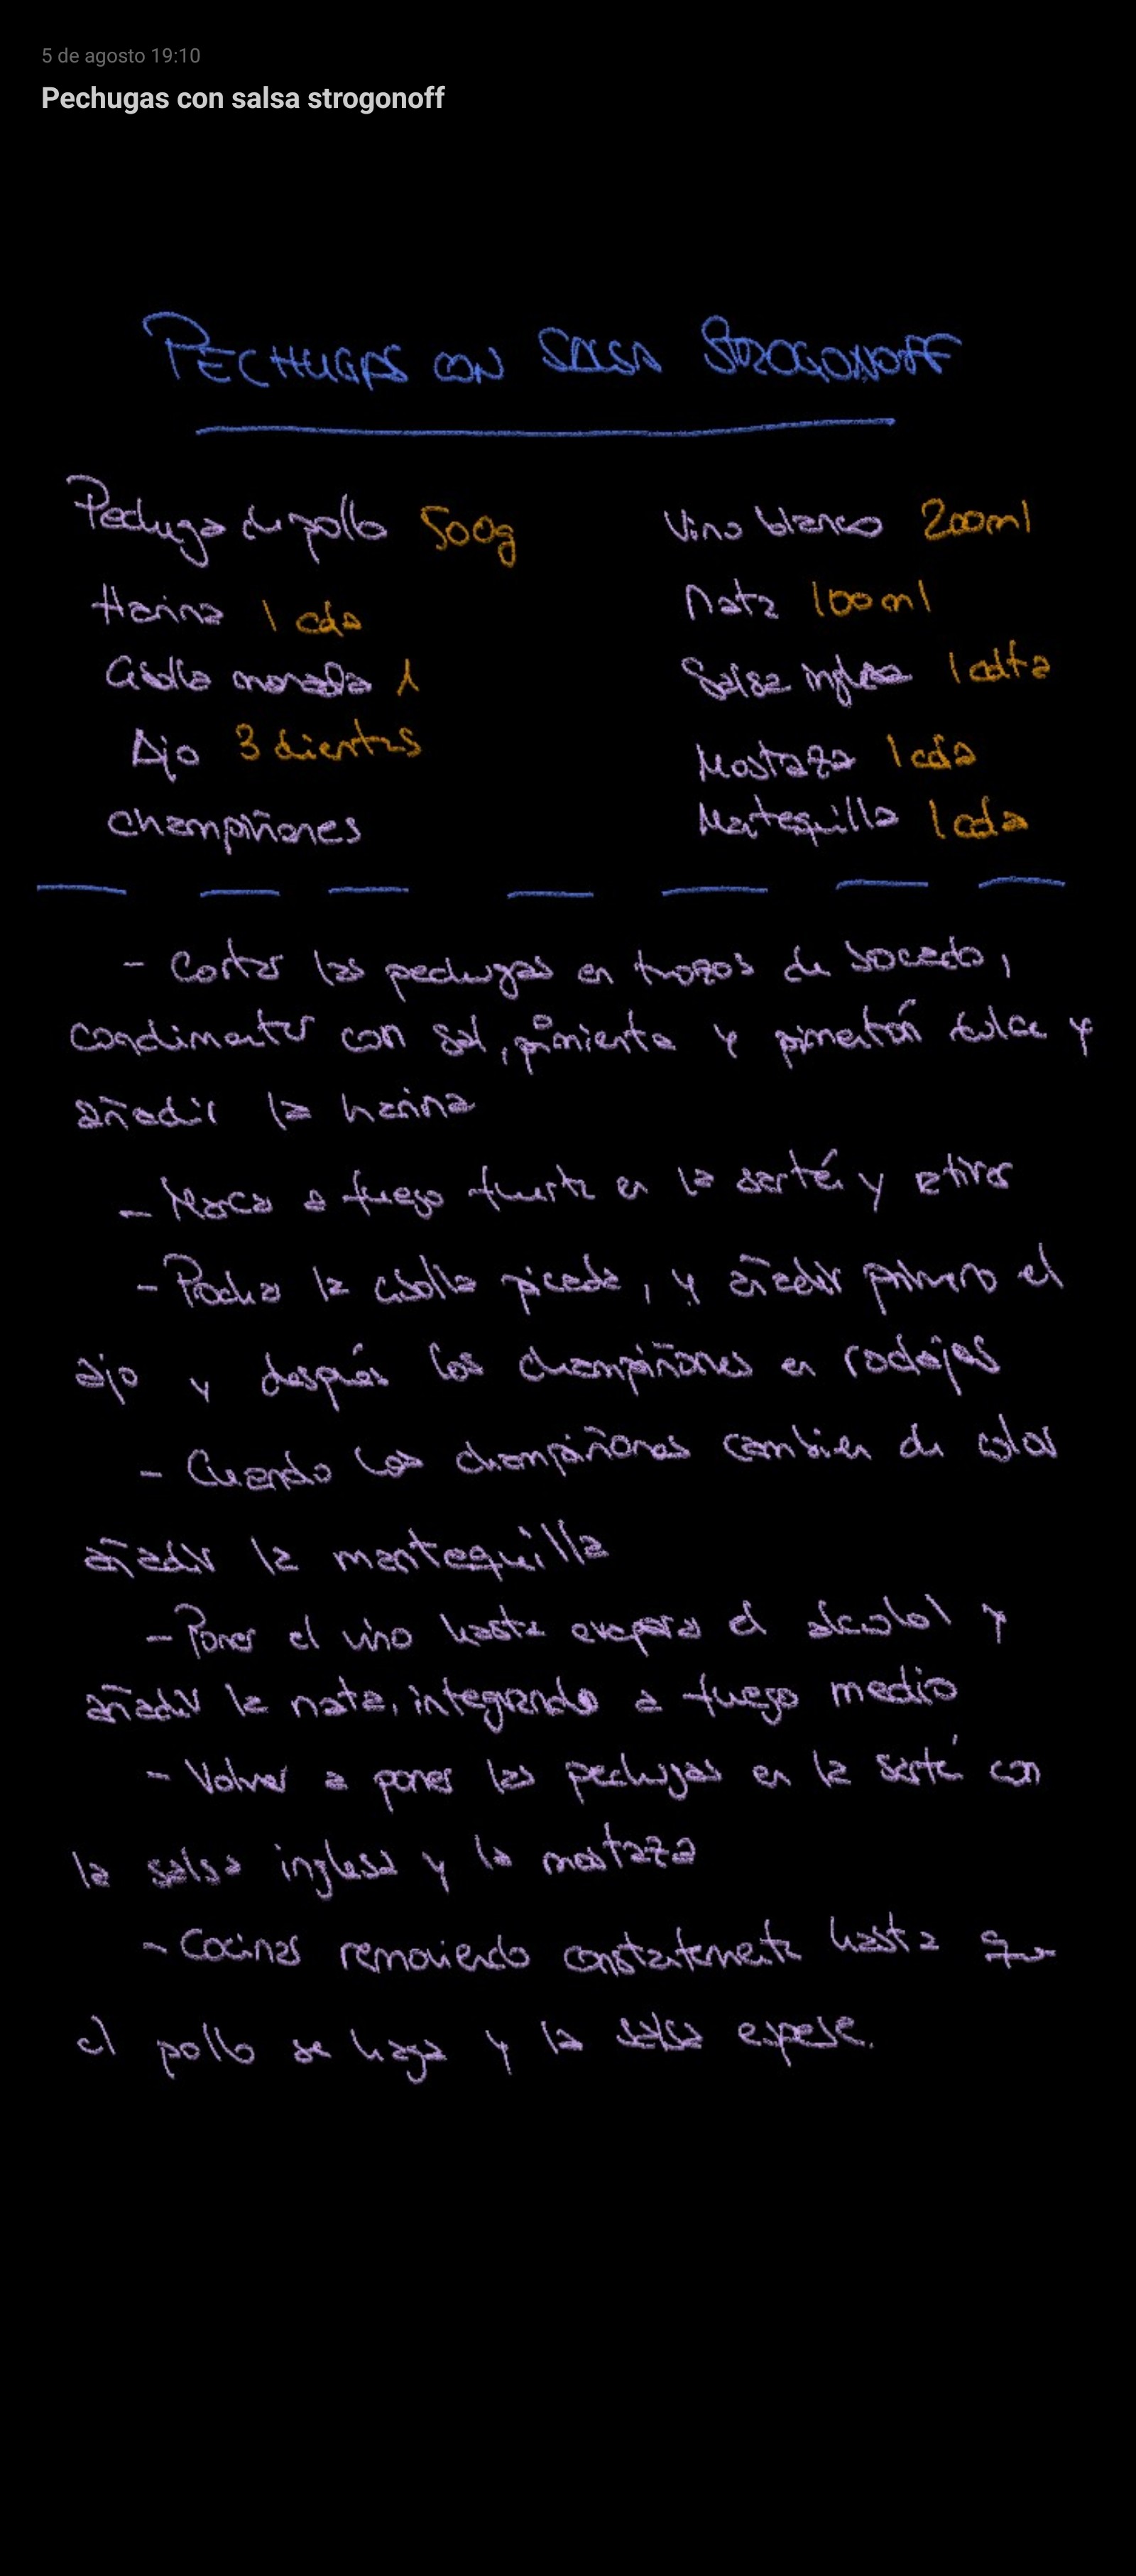 5 de agosto 19:10
Pechugas con salsa strogonoff
PECHUGAS CON SALSA STROGONOFF
Pechuga de pollo 500g
Harina 1 cda
Cebolla morada 1
Ajo 3 dientes
Champiñones
Vino blanco 200ml
Nata 100ml
Salsa inglesa 1 cdta
Mostaza 1 cda
Matequilla 1 cda
- Cortar las pechugas en trozos de bocado,
condimentar con sal, pimienta y pimentón dulce y
añadir la harina
- Marcar a fuego fuerte en la sartén y retirar
- Pochar la cebolla picada, y añadir primero el
ajo y después los champiñones en rodajas
- Cuando los champiñones cambien de color
añadir la mantequilla
- Poner el vino hasta evaporar el alcohol y
añadir la nata, integrando a fuego medio
- Volver a poner las pechugas en la sartén con
la salsa inglesa y la mostaza
- Cocinar removiendo constatemente hasta que
el pollo se haga y la salsa espese.